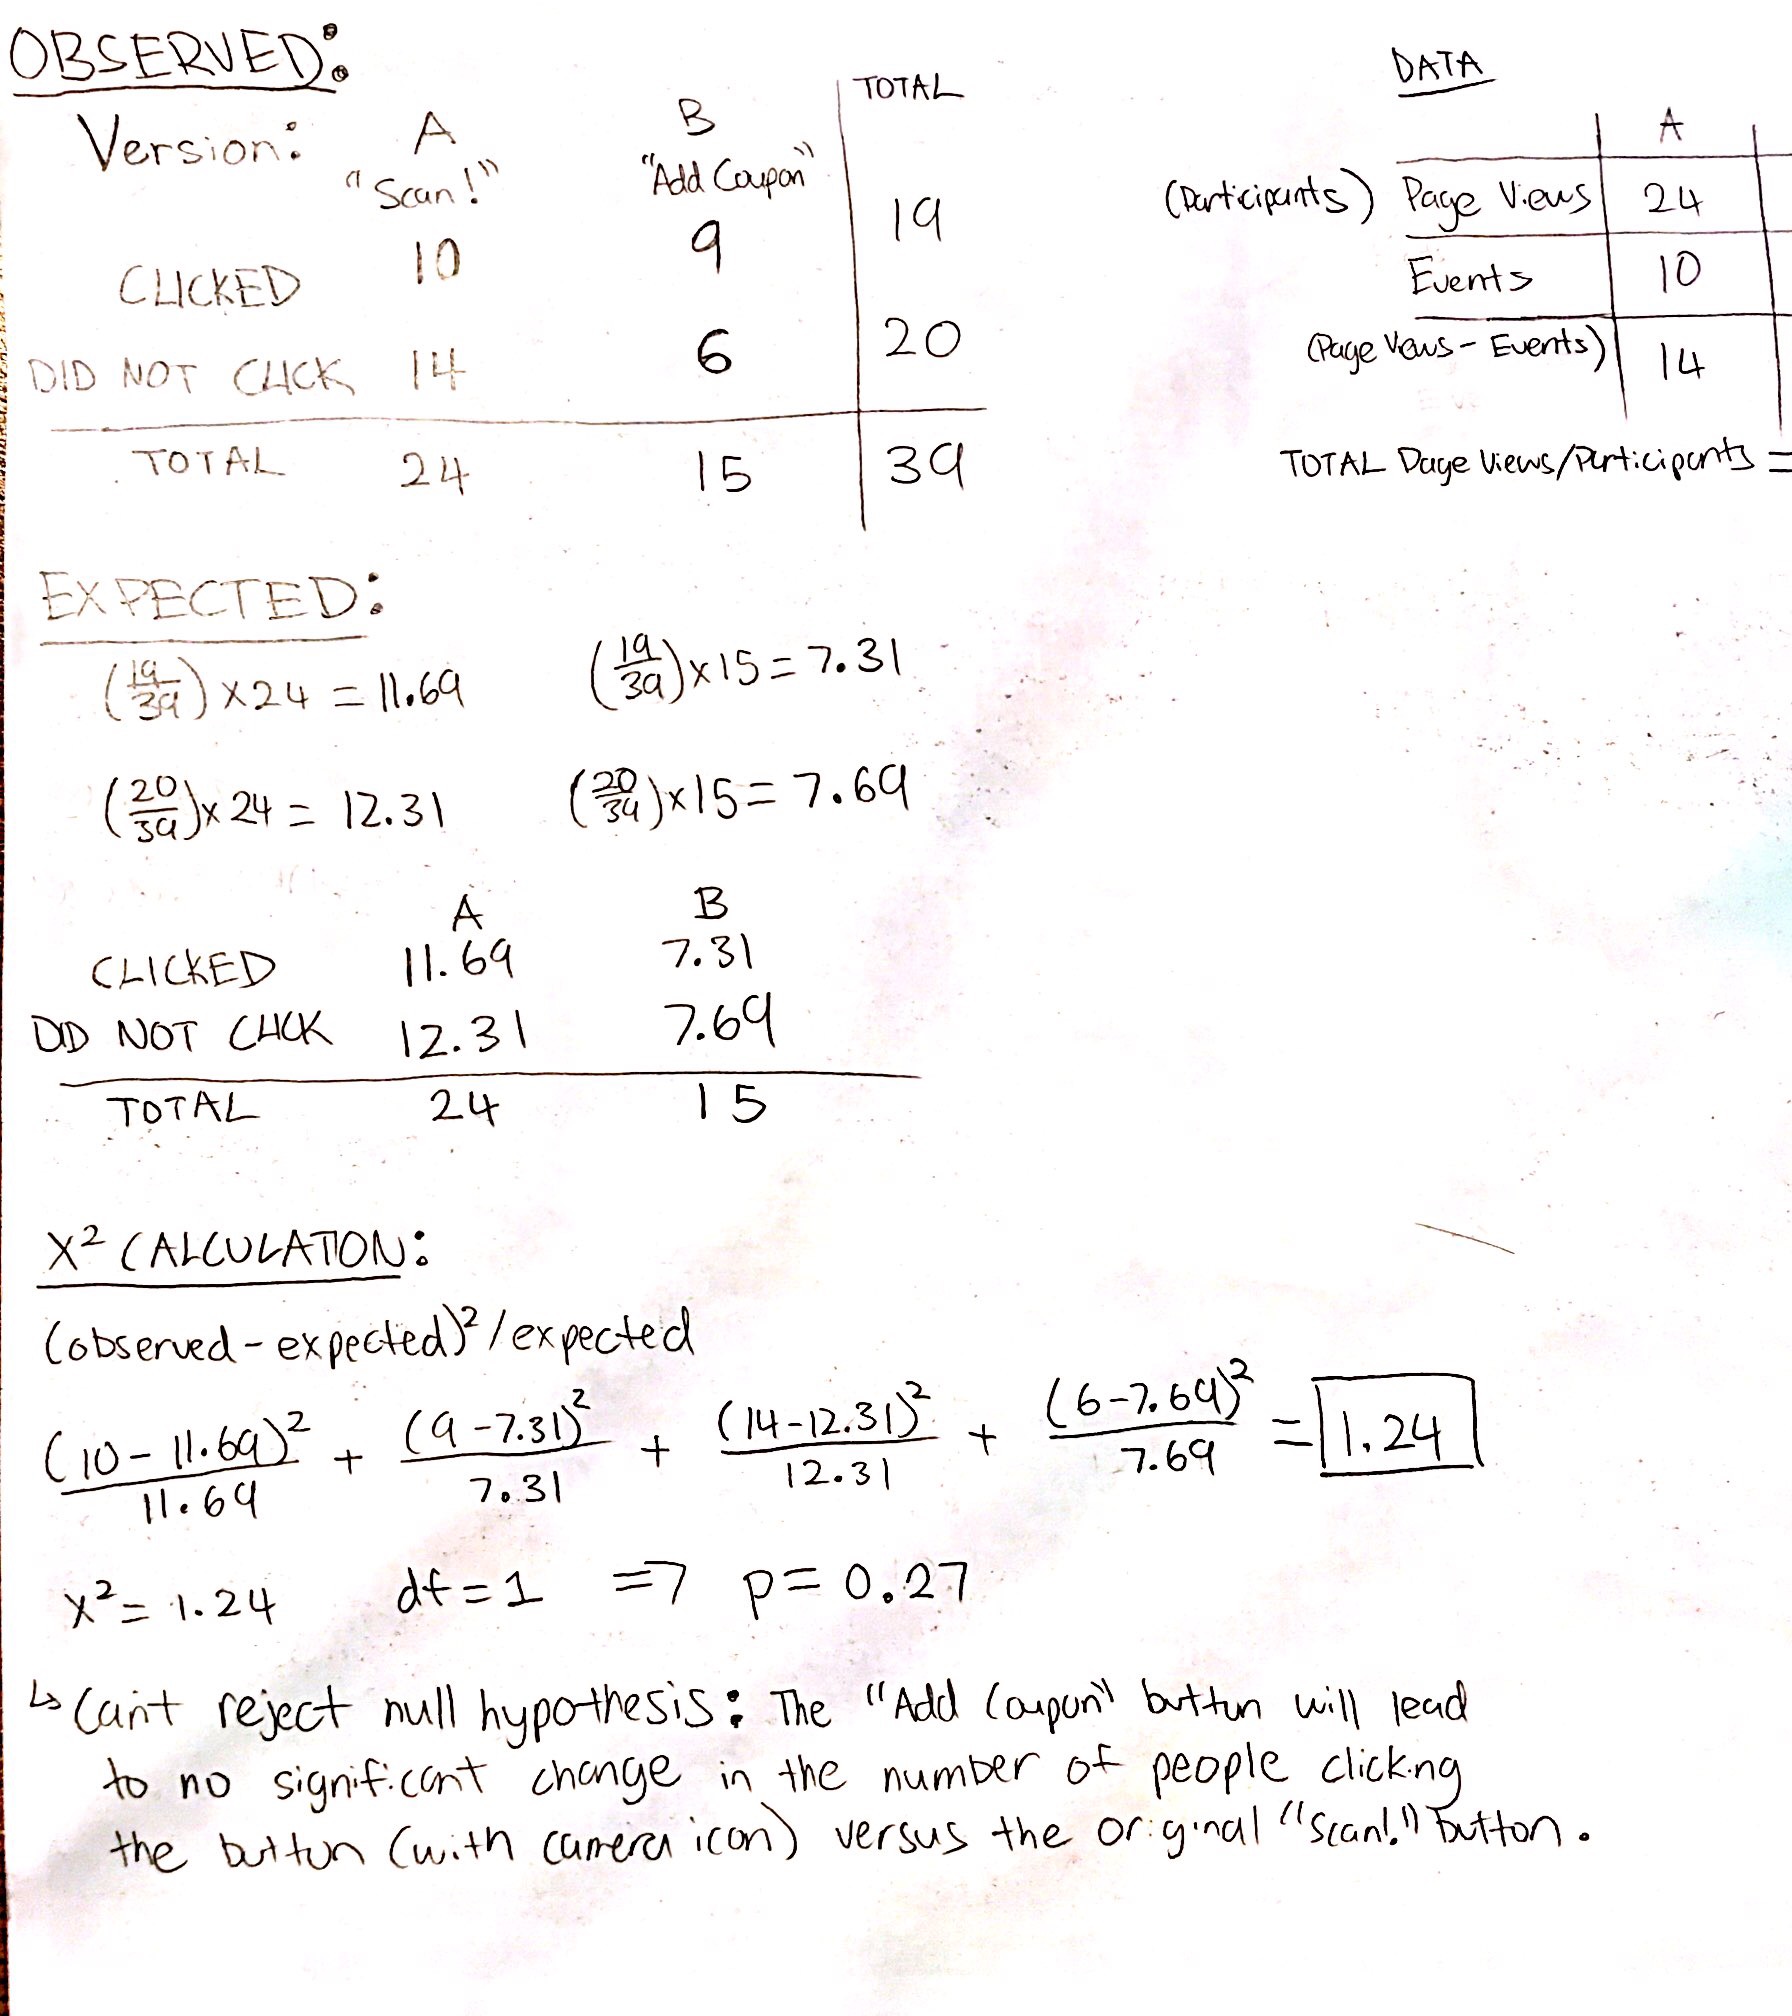 OBSERVED:
Version: A B TOTAL
"Scan!" "Add Coupon"
CLICKED 10 9 19
DID NOT CLICK 14 6 20
TOTAL 24 15 39
DATA
A
(Participants) Page Views 24
Events 10
(Page Views - Events) 14
TOTAL Page Views/Participants =
EXPECTED:
(19/39) x 24 = 11.69 (19/39) x 15 = 7.31
(20/39) x 24 = 12.31 (20/39) x 15 = 7.69
A B
CLICKED 11.69 7.31
DID NOT CLICK 12.31 7.69
TOTAL 24 15
X² CALCULATION:
(observed - expected)² / expected
(10 - 11.69)²/11.69 + (9 - 7.31)²/7.31 + (14 - 12.31)²/12.31 + (6 - 7.69)²/7.69 = 1.24
X² = 1.24 df = 1 => p = 0.27
↳ Can't reject null hypothesis: The "Add Coupon" button will lead
to no significant change in the number of people clicking
the button (with camera icon) versus the original "Scan!" button.